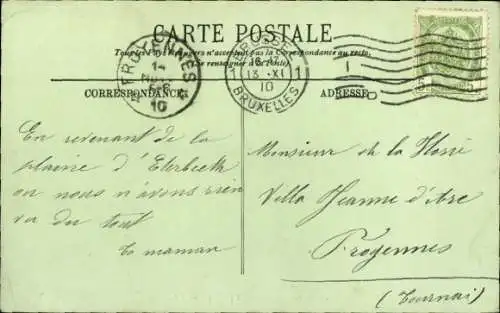 CARTE POSTALE
Tous les Pays étrangers n'acceptent pas la Correspondance au recto.
(Se renseigner à la Poste).
FROYENNES
14
10
BRUXELLES
1 13 XI 1
10
5 5
CORRESPONDANCE
ADRESSE
En revenant de la
plaine d'Eterbeeck
où nous n'avons rien
vu du tout
Ta maman
Monsieur de la
Villa Jeanne d'Arc
Froyennes
(Tournai)